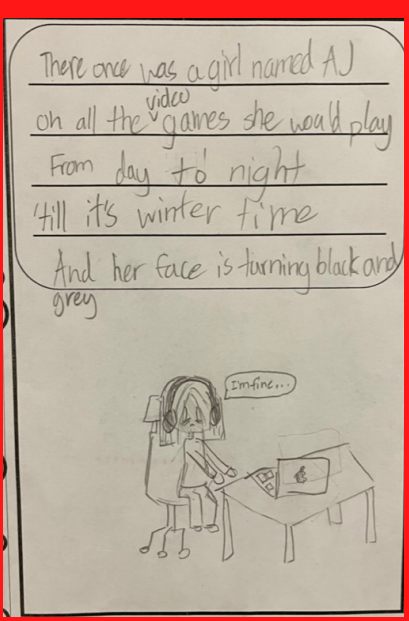 There once was a girl named AJ
oh all the video games she would play
From day to night
'till it's winter time
And her face is turning black and
grey
I'm fine...